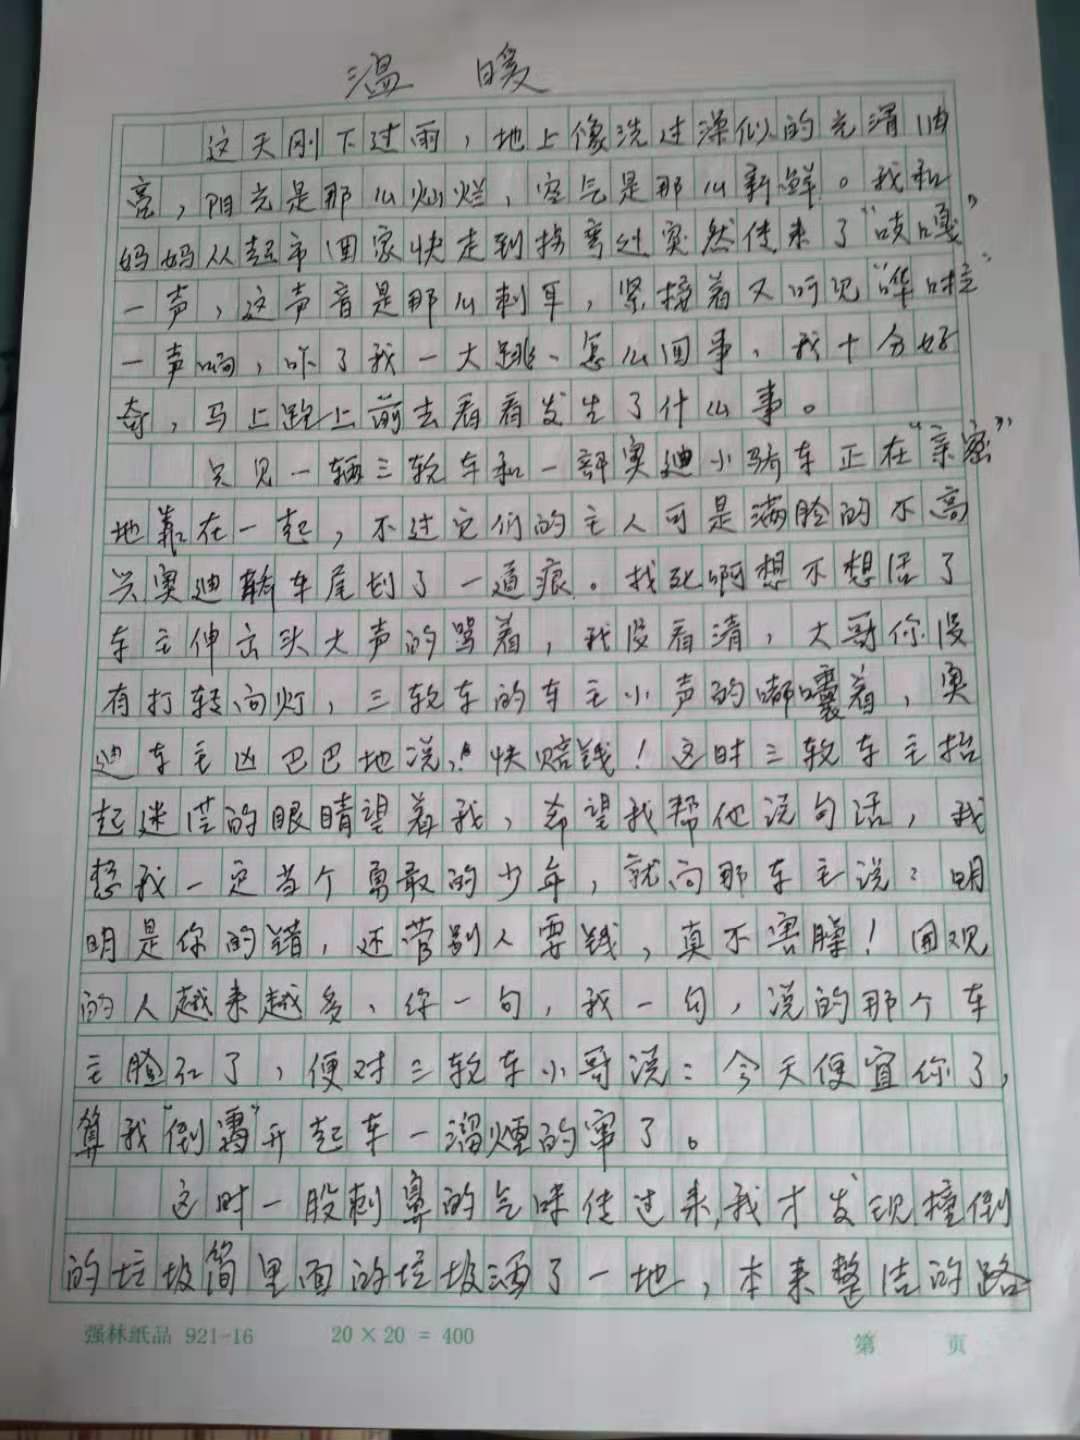 温 暖
这天刚下过雨，地上像洗过澡似的光滑油
亮，阳光是那么灿烂，空气是那么新鲜。我和
妈妈从超市回家快走到拐弯处突然传来了“吱嘎”
一声，这声音是那么刺耳，紧接着又听见“哗啦”
一声响，吓了我一大跳、怎么回事，我十分好
奇，马上跑上前去看看发生了什么事。
只见一辆三轮车和一部奥迪小轿车正在“亲密”
地靠在一起，不过它们的主人可是满脸的不高
兴奥迪轿车尾刮了一道痕。找死啊想不想活了
车主伸出头大声的骂着，我没看清，大哥你没
有打转向灯，三轮车的车主小声的嘟囔着，奥
迪车主凶巴巴地说，快赔钱！这时三轮车主抬
起迷茫的眼睛望着我，希望我帮他说句话，我
想我一定当个勇敢的少年，就向那车主说：明
明是你的错，还管别人要钱，真不害臊！围观
的人越来越多、你一句，我一句，说的那个车
主脸红了，便对三轮车小哥说：今天便宜你了，
算我“倒霉”开起车一溜烟的窜了。
这时一股刺鼻的气味传过来，我才发现撞倒
的垃圾筒里面的垃圾洒了一地，本来整洁的路
强林纸品 921-16 20×20=400 第 页